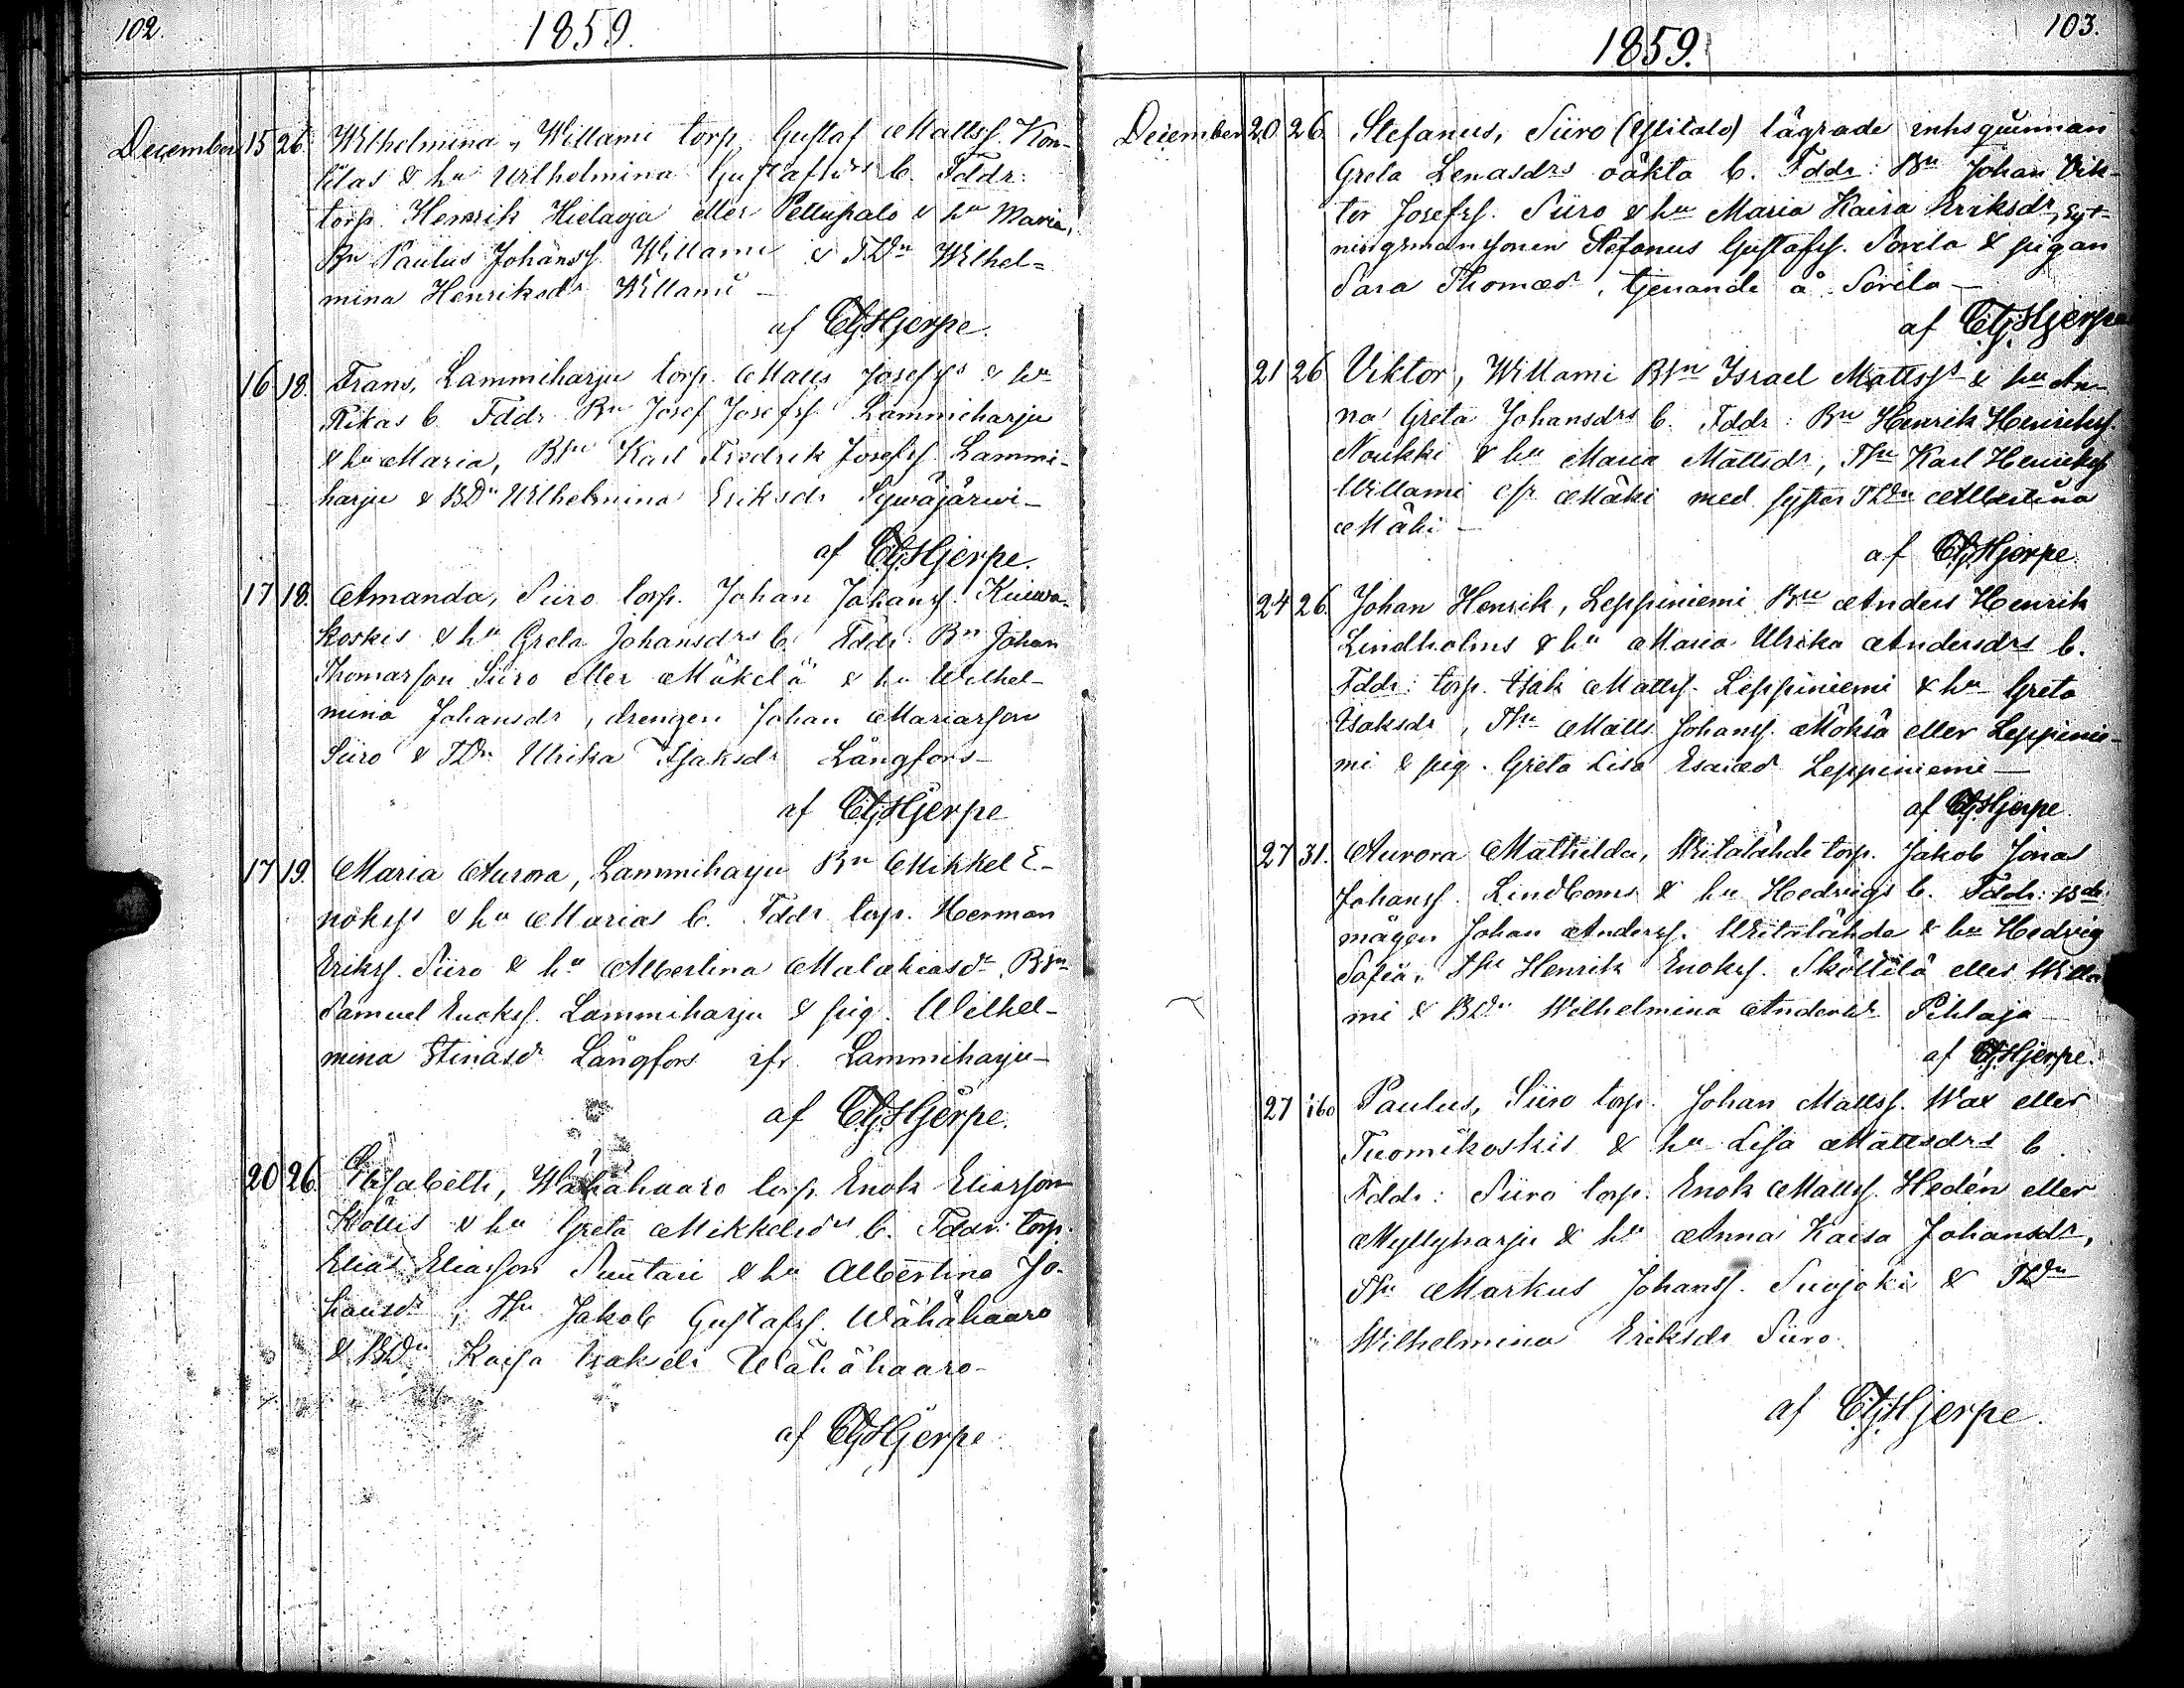 102.
1859.
December 15 26. Wilhelmina, Willami torp. Gustaf Mattss. Kon-
tilas & hu Wilhelmina Gustafsdrs b. Fddr:
torp. Henrik Hielaoja eller Pellupalo & hu Maria,
Bn Paulus Johanss. Willami & TDn Wilhel=
mina Henriksdr Willami –
af CGHjerpe.
16 18. Frans, Lammiharju torp. Matts Josefss & hu
Rikas b. Fddr Bn Josef Josefss. Lammiharju
& hu Maria, BSn Karl Fredrik Josefss. Lammi-
harju & BDn Wilhelmina Eriksdr Sywäjärwi –
af CGHjerpe.
17 18. Amanda, Siiro torp. Johan Johanss. Kuiwa-
koskis & hu Greta Johansdrs b. Fddr: Bn Johan
Thomasson Siiro eller Mäkelä & hu Wilhel-
mina Johansdr, drengen Johan Mariasson
Siiro & TDn Ulrika Isaksdr Långfors –
af CGHjerpe
17 19. Maria Aurora, Lammiharju Bn Mikkel E-
nokss & hu Marias b. Fddr torp. Herman
Erikss. Siiro & hu Albertina Malakiasdr, BSn
Samuel Enokss. Lammiharju & pig. Wilhel-
mina Stinasdr Långfors ifr. Lammiharju –
af CGHjerpe.
20 26. Elisabeth, Wähähaaro torp. Enok Eliasson
Köllis & hu Greta Mikkelsdrs b. Fddr: torp.
Elias Eliasson Puntari & hu Albertina Jo-
hansdr, TSn Jakob Gustafss. Wähähaaro
& BDn Kaisa Isaksdr Wähähaaro –
af CGHjerpe
103.
1859.
December 20 26. Stefanus, Siiro (Ylitalo) lägrade inhsqvinnan
Greta Lenasdrs oäkta b. Fddr: Bn Johan Vik-
tor Josefss. Siiro & hu Maria Kaisa Eriksdr, Syt-
ningsmansonen Stefanus Gustafss. Sorila & pigan
Sara Thomasd, tjenande å Sorila –
af CGHjerpe
21 26 Viktor, Willami BSn Israel Mattss & hu An-
na Greta Johansdrs b. Fddr: Bn Henrik Henrikss.
Naukki & hu Maria Mattsdr, TSn Karl Henrikss
Willami ifr Mäki med syster TDn Albertina
Mäki –
af CGHjerpe.
24 26. Johan Henrik, Leppiniemi Bn Anders Henrik
Lindholms & hu Maria Ulrika Andersdrs b.
Fddr: torp. Isak Mattss. Leppiniemi & hu Greta
Isaksdr, TSn Matts Johanss. Moksö eller Leppinie-
mi & pig. Greta Lisa Esaiasd Leppiniemi –
af CGHjerpe.
27 31. Aurora Mathilda, Witalähde torp. Jakob Jonas
Johanss. Lindboms & hu Hedvigs b. Fddr: Bde
mågen Johan Anderss. Witalähde & hu Hedvig
Sofia, TSn Henrik Enokss. Sköttilä eller Willa-
mi & BDn Wilhelmina Andersdr Pihlaja
af CGHjerpe.
27 1/60 Paulus, Siiro torp. Johan Mattss. Wax eller
Tuomikoskis & hu Lisa Mattsdrs b.
Fddr: Siiro torp. Enok Mattss. Hedén eller
Myllyharju & hu Anna Kaisa Johansdr,
TSn Markus Johanss. Suojoki & TDn
Wilhelmina Eriksdr Siiro.
af CGHjerpe.